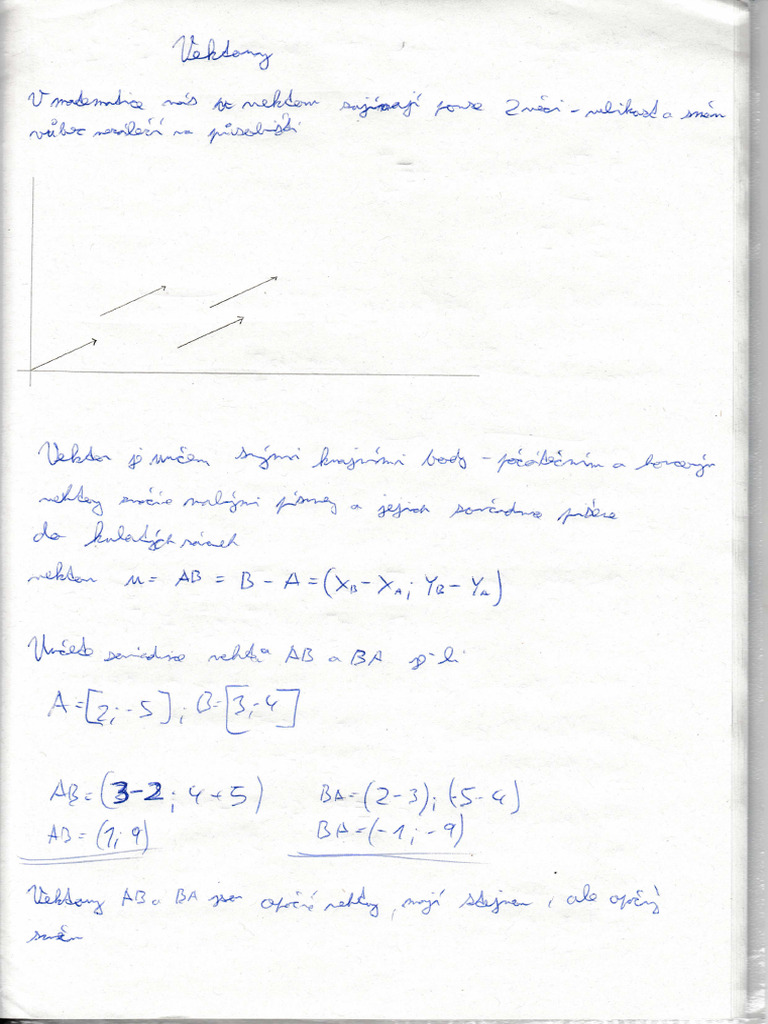 Vektory
V matematice nás na vektoru zajímají pouze 2 věci - velikost a směr
vůbec nezáleží na působišti
Vektor je určen svými krajními body - počátečním a koncovým
vektory značíme malými písmeny a jejich souřadnice píšeme
do kulatých závorek
vektor u = AB = B - A = (XB - XA; YB - YA)
Určete souřadnice vektorů AB a BA je-li
A=[2;-5]; B=[3;4]
AB=(3-2; 4+5) BA=(2-3);(-5-4)
AB=(1;9) BA=(-1;-9)
Vektory AB a BA jsou opačné vektory, mají stejnou, ale opačný
směr